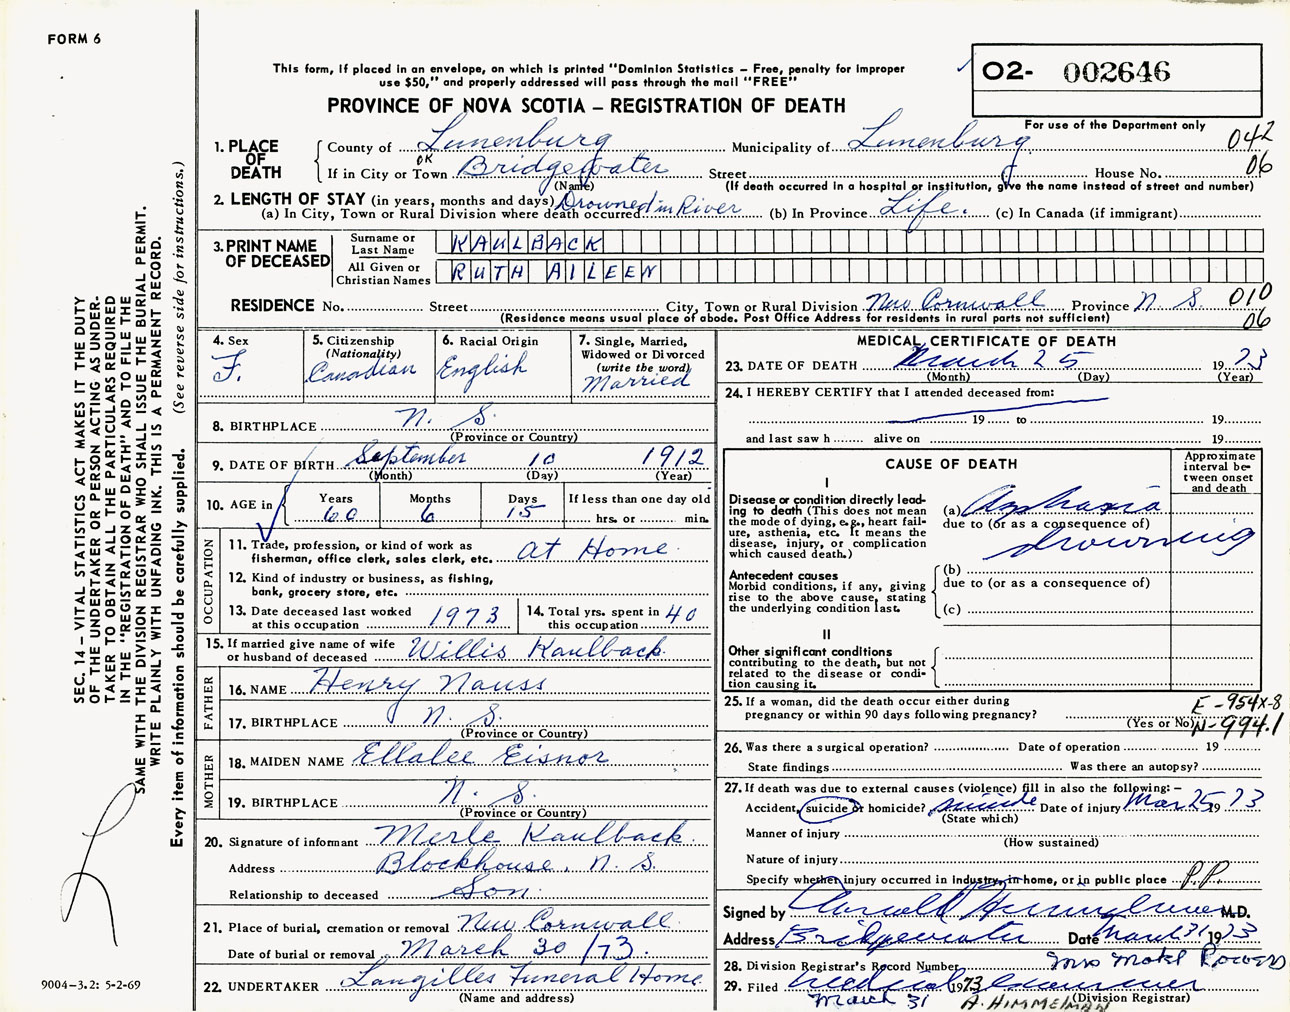 FORM 6
This form, if placed in an envelope, on which is printed "Dominion Statistics – Free, penalty for improper
use $50," and properly addressed will pass through the mail "FREE"
PROVINCE OF NOVA SCOTIA – REGISTRATION OF DEATH
O2- 002646
For use of the Department only
1. PLACE OF DEATH
County of Lunenburg Municipality of Lunenburg 042
OK
If in City or Town Bridgewater Street House No. 06
(Name) (If death occurred in a hospital or institution, give the name instead of street and number)
2. LENGTH OF STAY (in years, months and days)
(a) In City, Town or Rural Division where death occurred Drowned in River (b) In Province Life. (c) In Canada (if immigrant)
3. PRINT NAME OF DECEASED
Surname or Last Name KAULBACK
All Given or Christian Names RUTH AILEEN
RESIDENCE No. Street City, Town or Rural Division New Cornwall Province N. S. 010
(Residence means usual place of abode. Post Office Address for residents in rural parts not sufficient) 06
4. Sex
F.
5. Citizenship
(Nationality)
Canadian
6. Racial Origin
English
7. Single, Married,
Widowed or Divorced
(write the word)
Married
8. BIRTHPLACE N. S.
(Province or Country)
9. DATE OF BIRTH September 10 1912
(Month) (Day) (Year)
10. AGE in
Years 60
Months 6
Days 15
If less than one day old
hrs. or min.
OCCUPATION
11. Trade, profession, or kind of work as
fisherman, office clerk, sales clerk, etc. At Home
12. Kind of industry or business, as fishing,
bank, grocery store, etc.
13. Date deceased last worked
at this occupation 1973
14. Total yrs. spent in
this occupation 40
15. If married give name of wife
or husband of deceased Willis Kaulback
FATHER
16. NAME Henry Nauss
17. BIRTHPLACE N. S.
(Province or Country)
MOTHER
18. MAIDEN NAME Ellalee Eisnor
19. BIRTHPLACE N. S.
(Province or Country)
20. Signature of informant Merle Kaulback
Address Blockhouse, N. S.
Relationship to deceased Son.
21. Place of burial, cremation or removal New Cornwall
Date of burial or removal March 30/73.
22. UNDERTAKER Langilles Funeral Home
(Name and address)
MEDICAL CERTIFICATE OF DEATH
23. DATE OF DEATH March 25 1973
(Month) (Day) (Year)
24. I HEREBY CERTIFY that I attended deceased from:
19 to 19
and last saw h alive on 19
CAUSE OF DEATH
Approximate
interval be-
tween onset
and death
I
Disease or condition directly lead-
ing to death (This does not mean
the mode of dying, e.g., heart fail-
ure, asthenia, etc. It means the
disease, injury, or complication
which caused death.)
(a) Asphaxia
due to (or as a consequence of)
drowning
Antecedent causes
Morbid conditions, if any, giving
rise to the above cause, stating
the underlying condition last.
(b)
due to (or as a consequence of)
(c)
II
Other significant conditions
contributing to the death, but not
related to the disease or condi-
tion causing it.
25. If a woman, did the death occur either during
pregnancy or within 90 days following pregnancy?
(Yes or No)
E-954X-8
N-994.1
26. Was there a surgical operation? Date of operation 19
State findings Was there an autopsy?
27. If death was due to external causes (violence) fill in also the following: –
Accident, suicide or homicide? suicide Date of injury Mar 25 1973
(State which)
Manner of injury
(How sustained)
Nature of injury
Specify whether injury occurred in industry, in home, or in public place P.P.
Signed by M.D.
Address Bridgewater Date March 31 1973
28. Division Registrar's Record Number
29. Filed 1973
March 31 A. HIMMELMAN (Division Registrar)
SEC. 14 – VITAL STATISTICS ACT MAKES IT THE DUTY
OF THE UNDERTAKER OR PERSON ACTING AS UNDER-
TAKER TO OBTAIN ALL THE PARTICULARS REQUIRED
IN THE "REGISTRATION OF DEATH" AND TO FILE THE
SAME WITH THE DIVISION REGISTRAR WHO SHALL ISSUE THE BURIAL PERMIT.
WRITE PLAINLY WITH UNFADING INK. THIS IS A PERMANENT RECORD.
Every item of information should be carefully supplied. (See reverse side for instructions.)
9004-3.2: 5-2-69